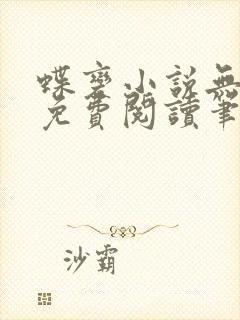 蝶變小說無
免費閱讀筆
沙霸